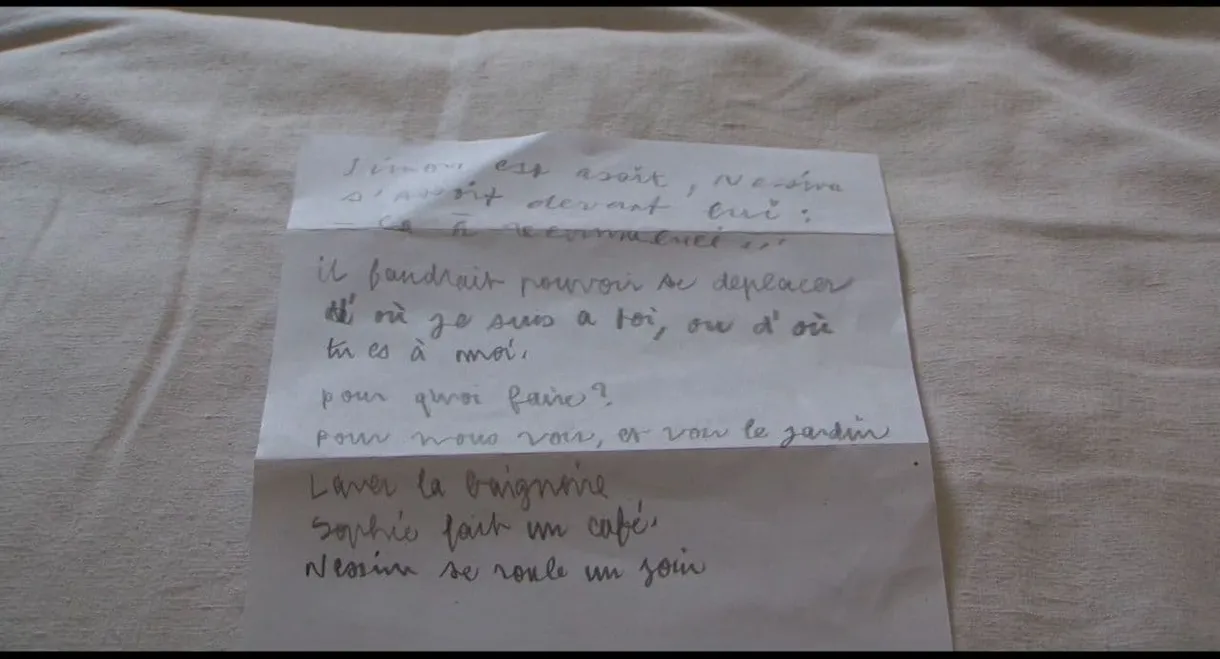 Simon est asoit, Nessim
s'assoit devant lui :
- ça a recommencé...
il faudrait pouvoir se deplacer
d'où je suis a toi, ou d'où
tu es à moi.
pour quoi faire?
pour nous voir, et voir le jardin
Laver la baignoire
Sophie fait un café.
Nessim se roule un join